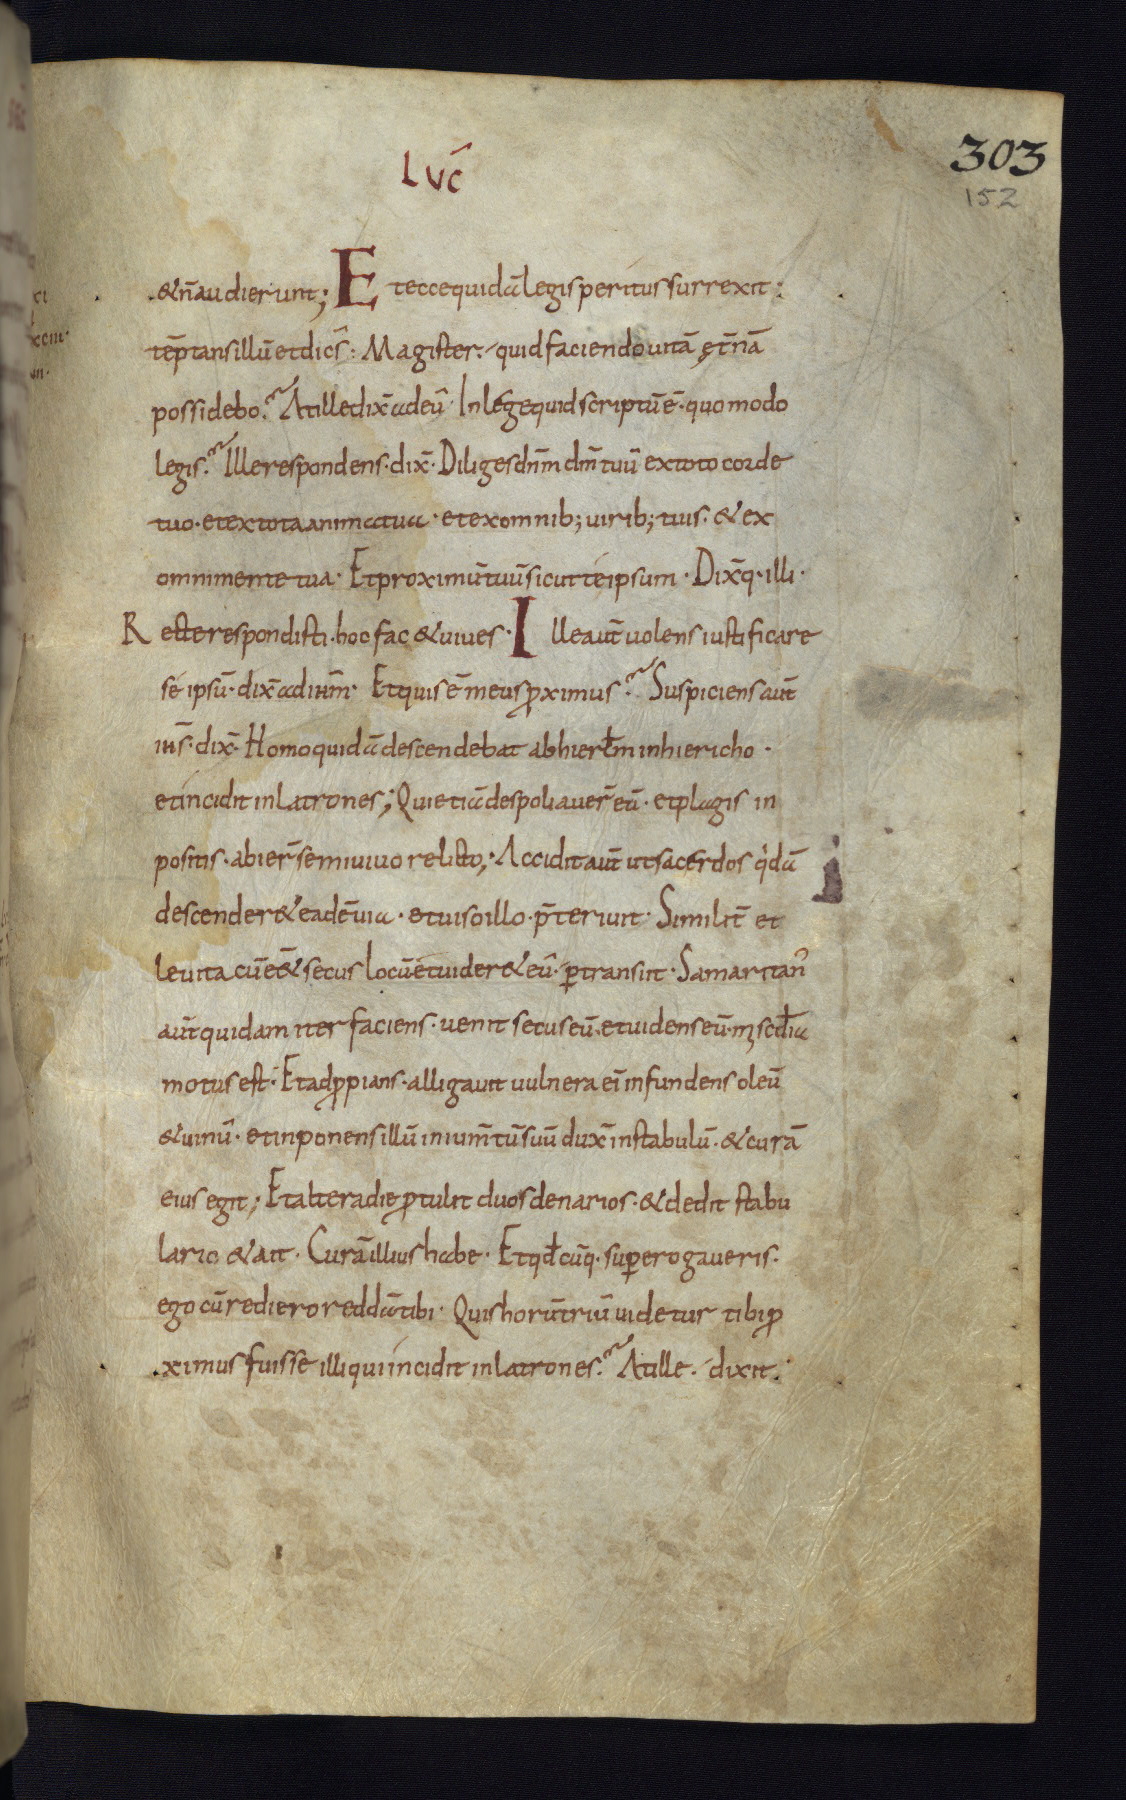 LVC̄
303
152
& n̄ audierunt; Et ecce quidā legisperitus surrexit:
tēptans illū et dicēs: Magister. quid faciendo uitā ęt̄nā
possidebo? At ille dix̄ ad eū. In lége quid scriptū ē. quomodo
legis? Ille respondens. dix̄. Diliges dn̄m dm̄ tuū ex toto corde
tuo. et ex tota anima tua. et ex omnib; uirib; tuis. & ex
omni mente tua. Et proximū tuū sicut té ipsum. Dix̄q. illi.
Recte respondisti. hoc fac & uiues. Ille aūt uolens iustificare
sé ipsū. dix̄ ad ihm̄. Et quis ē meus ꝓximus? Suspiciens aūt
ih̄s. dix̄. Homo quidā descendebat ab hierl̄m in hiericho.
et incidit in latrones; Qui etiā despoliauer̄ eū. et plagis in
positis. abier̄ semiuiuo relicto; Accidit aūt ut sacerdos qͥdā
descender& eadē uia. et uiso illo. p̄teriuit. Similit̄ et
leuita cū ēt & secus locū et uider& eū. ꝑtransiit. Samaritan᾽
aūt quidam iter faciens. uenit secus eū. et uidens eū. mīscd̄ia
motus est. Et adꝓpians. alligauit uulnera ei᾽ infundens oleū
& uinū. et inponens illū in iumt̄ū suū dux̄ in stabulū. & curā
eius egit; Et altera die ꝓtulit duos denarios. & dedit stabu
lario & ait. Curā illius habe. Et qd̄cūq. suꝑerogaueris.
ego cū rediero reddā tibi. Quis horū triū uidetur tibi ꝓ
ximus fuisse illi qui incidit in latrones? At ille. dixit.